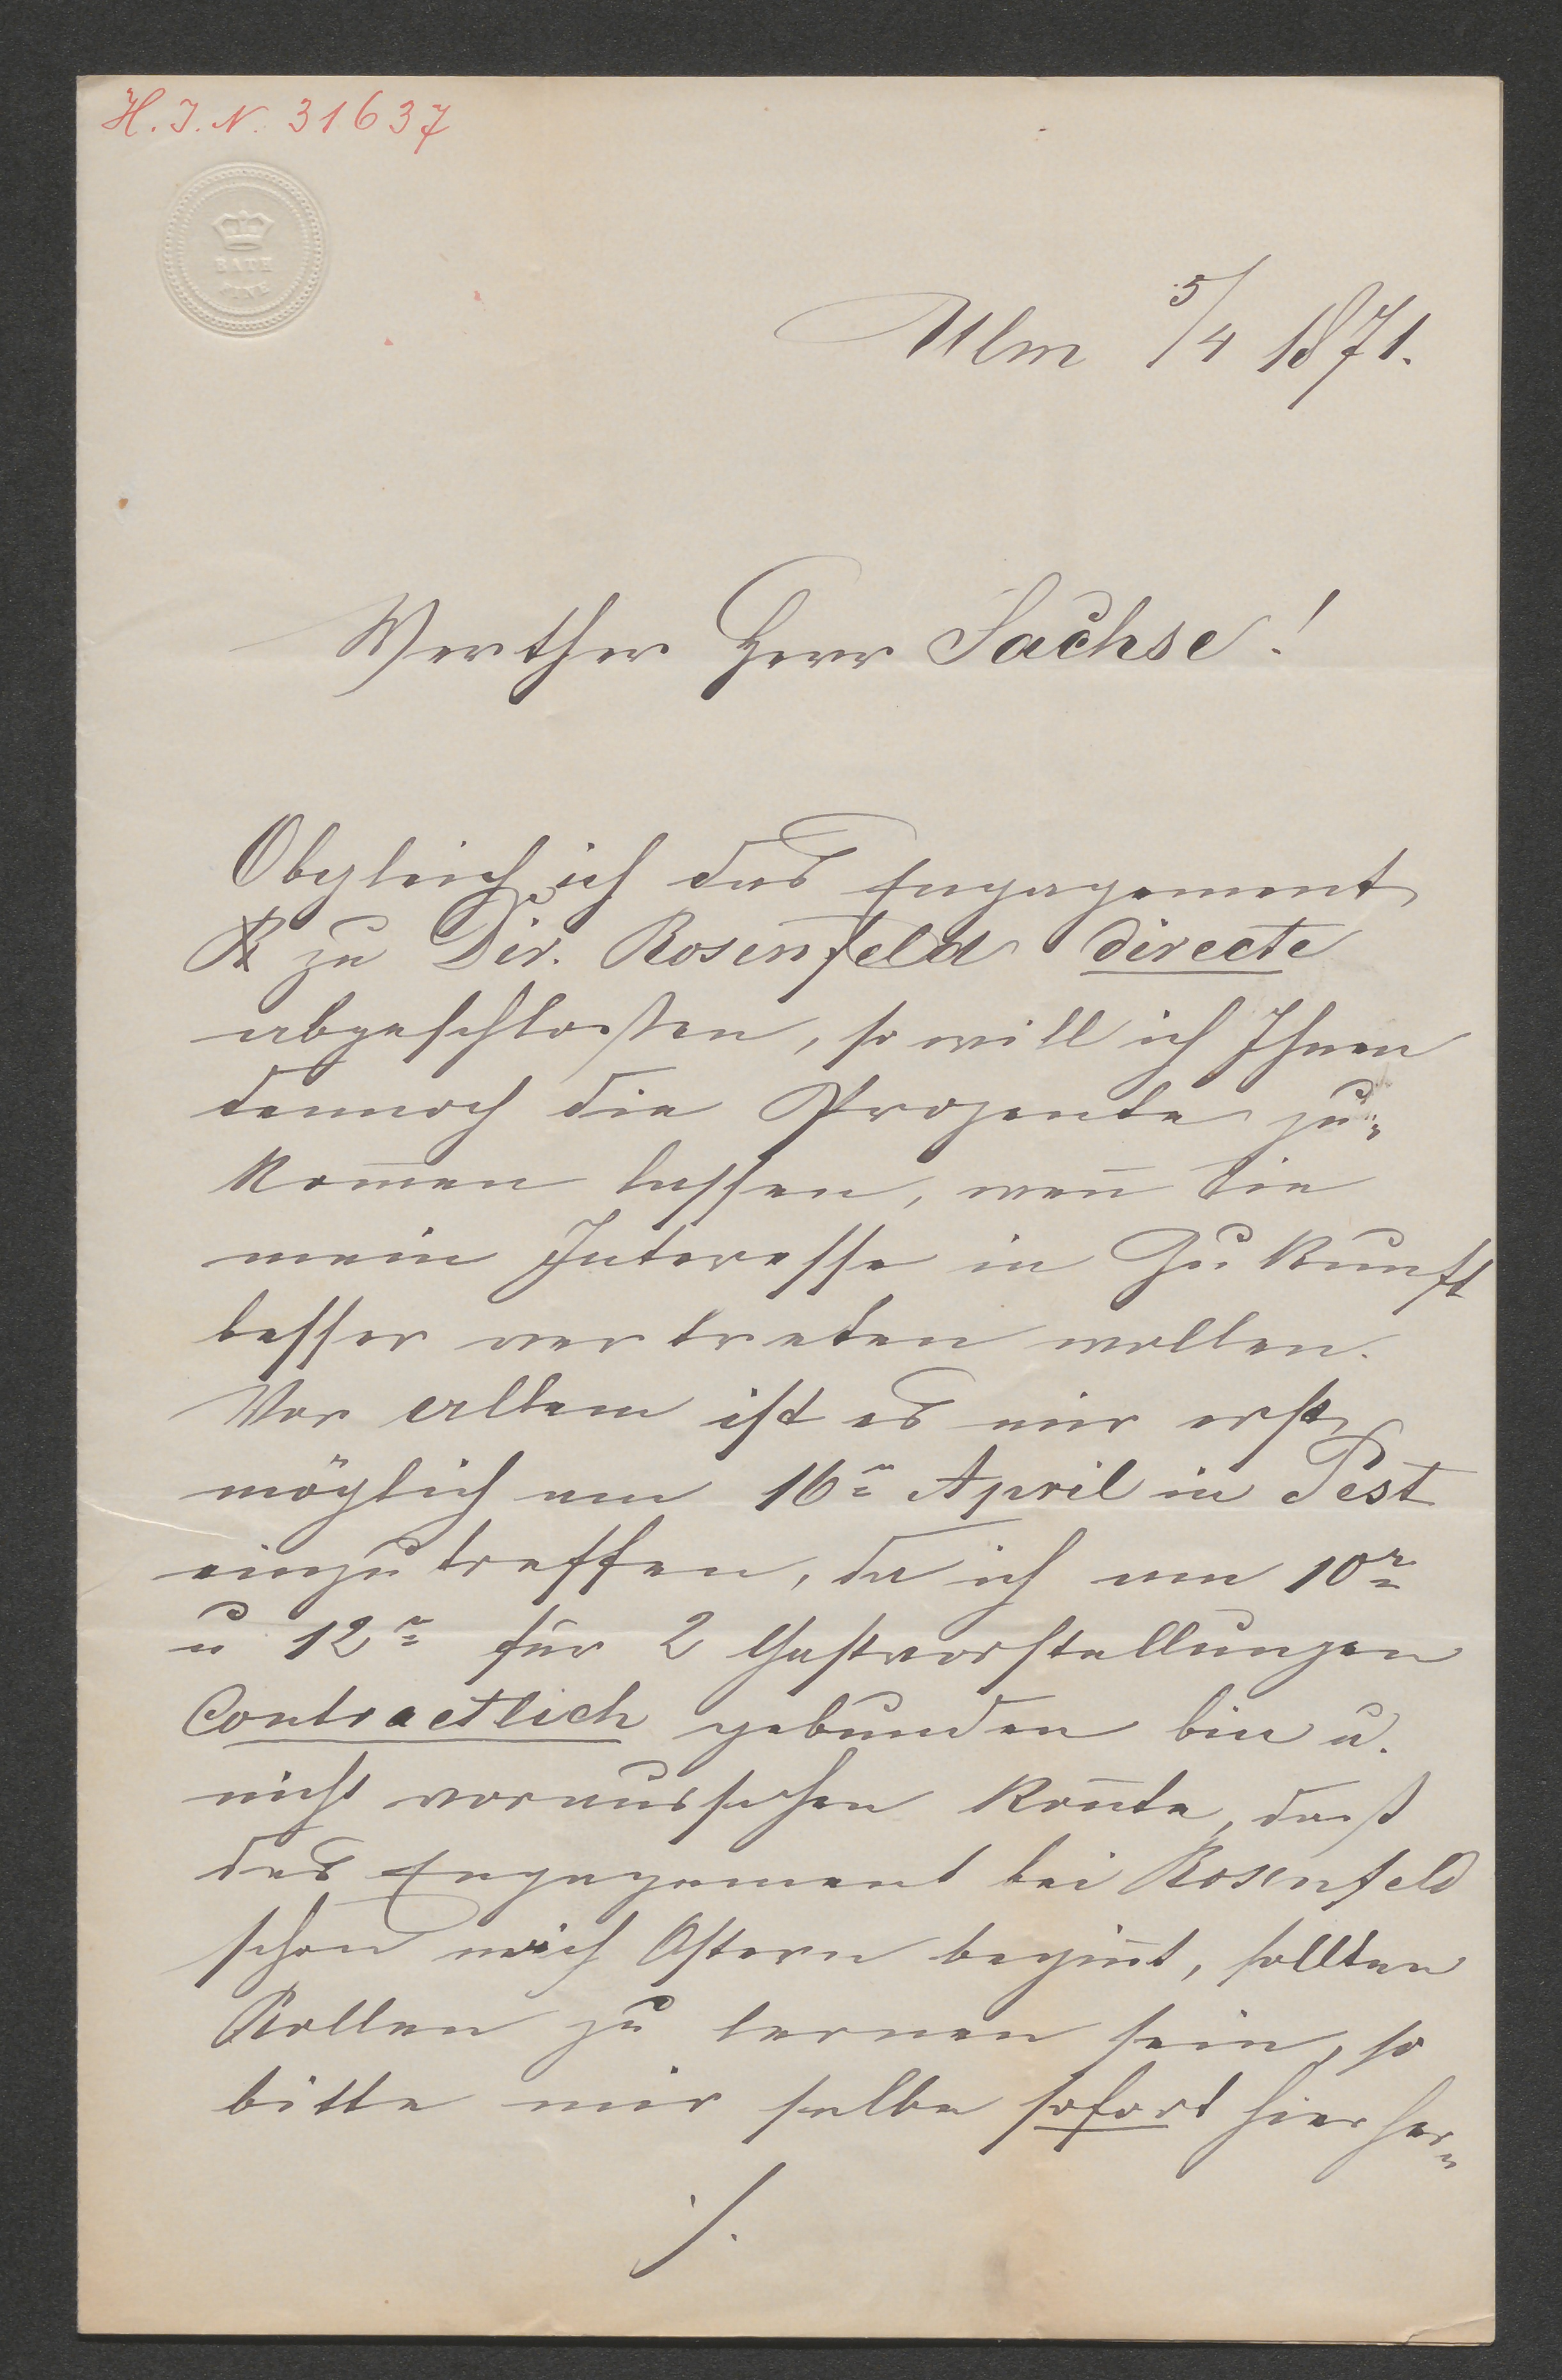 H. I. N. 31637
BATH
Ulm 5/4 1871.
Werther Herr Sachse!
Obgleich ich das Engagement
zu Dir. Rosenfeld directe
abgeschloßen, so will ich Ihnen
dennoch die Prozente zu=
kom̄en lassen, wen̄ Sie
mein Interesse in Zukunft
besser vertreten wollen.
Vor allem ist es mir erst
möglich am 16n April in Pest
einzutreffen, da ich am 10n
u 12n für 2 Gastvorstellungen
Contractlich gebunden bin u.
nicht voraussehen kon̄te, daß
das Engagement bei Rosenfeld
schon nach Ostern begin̄t, sollten
Rollen zu lernen sein, so
bitte mir selbe sofort hierher=
./.